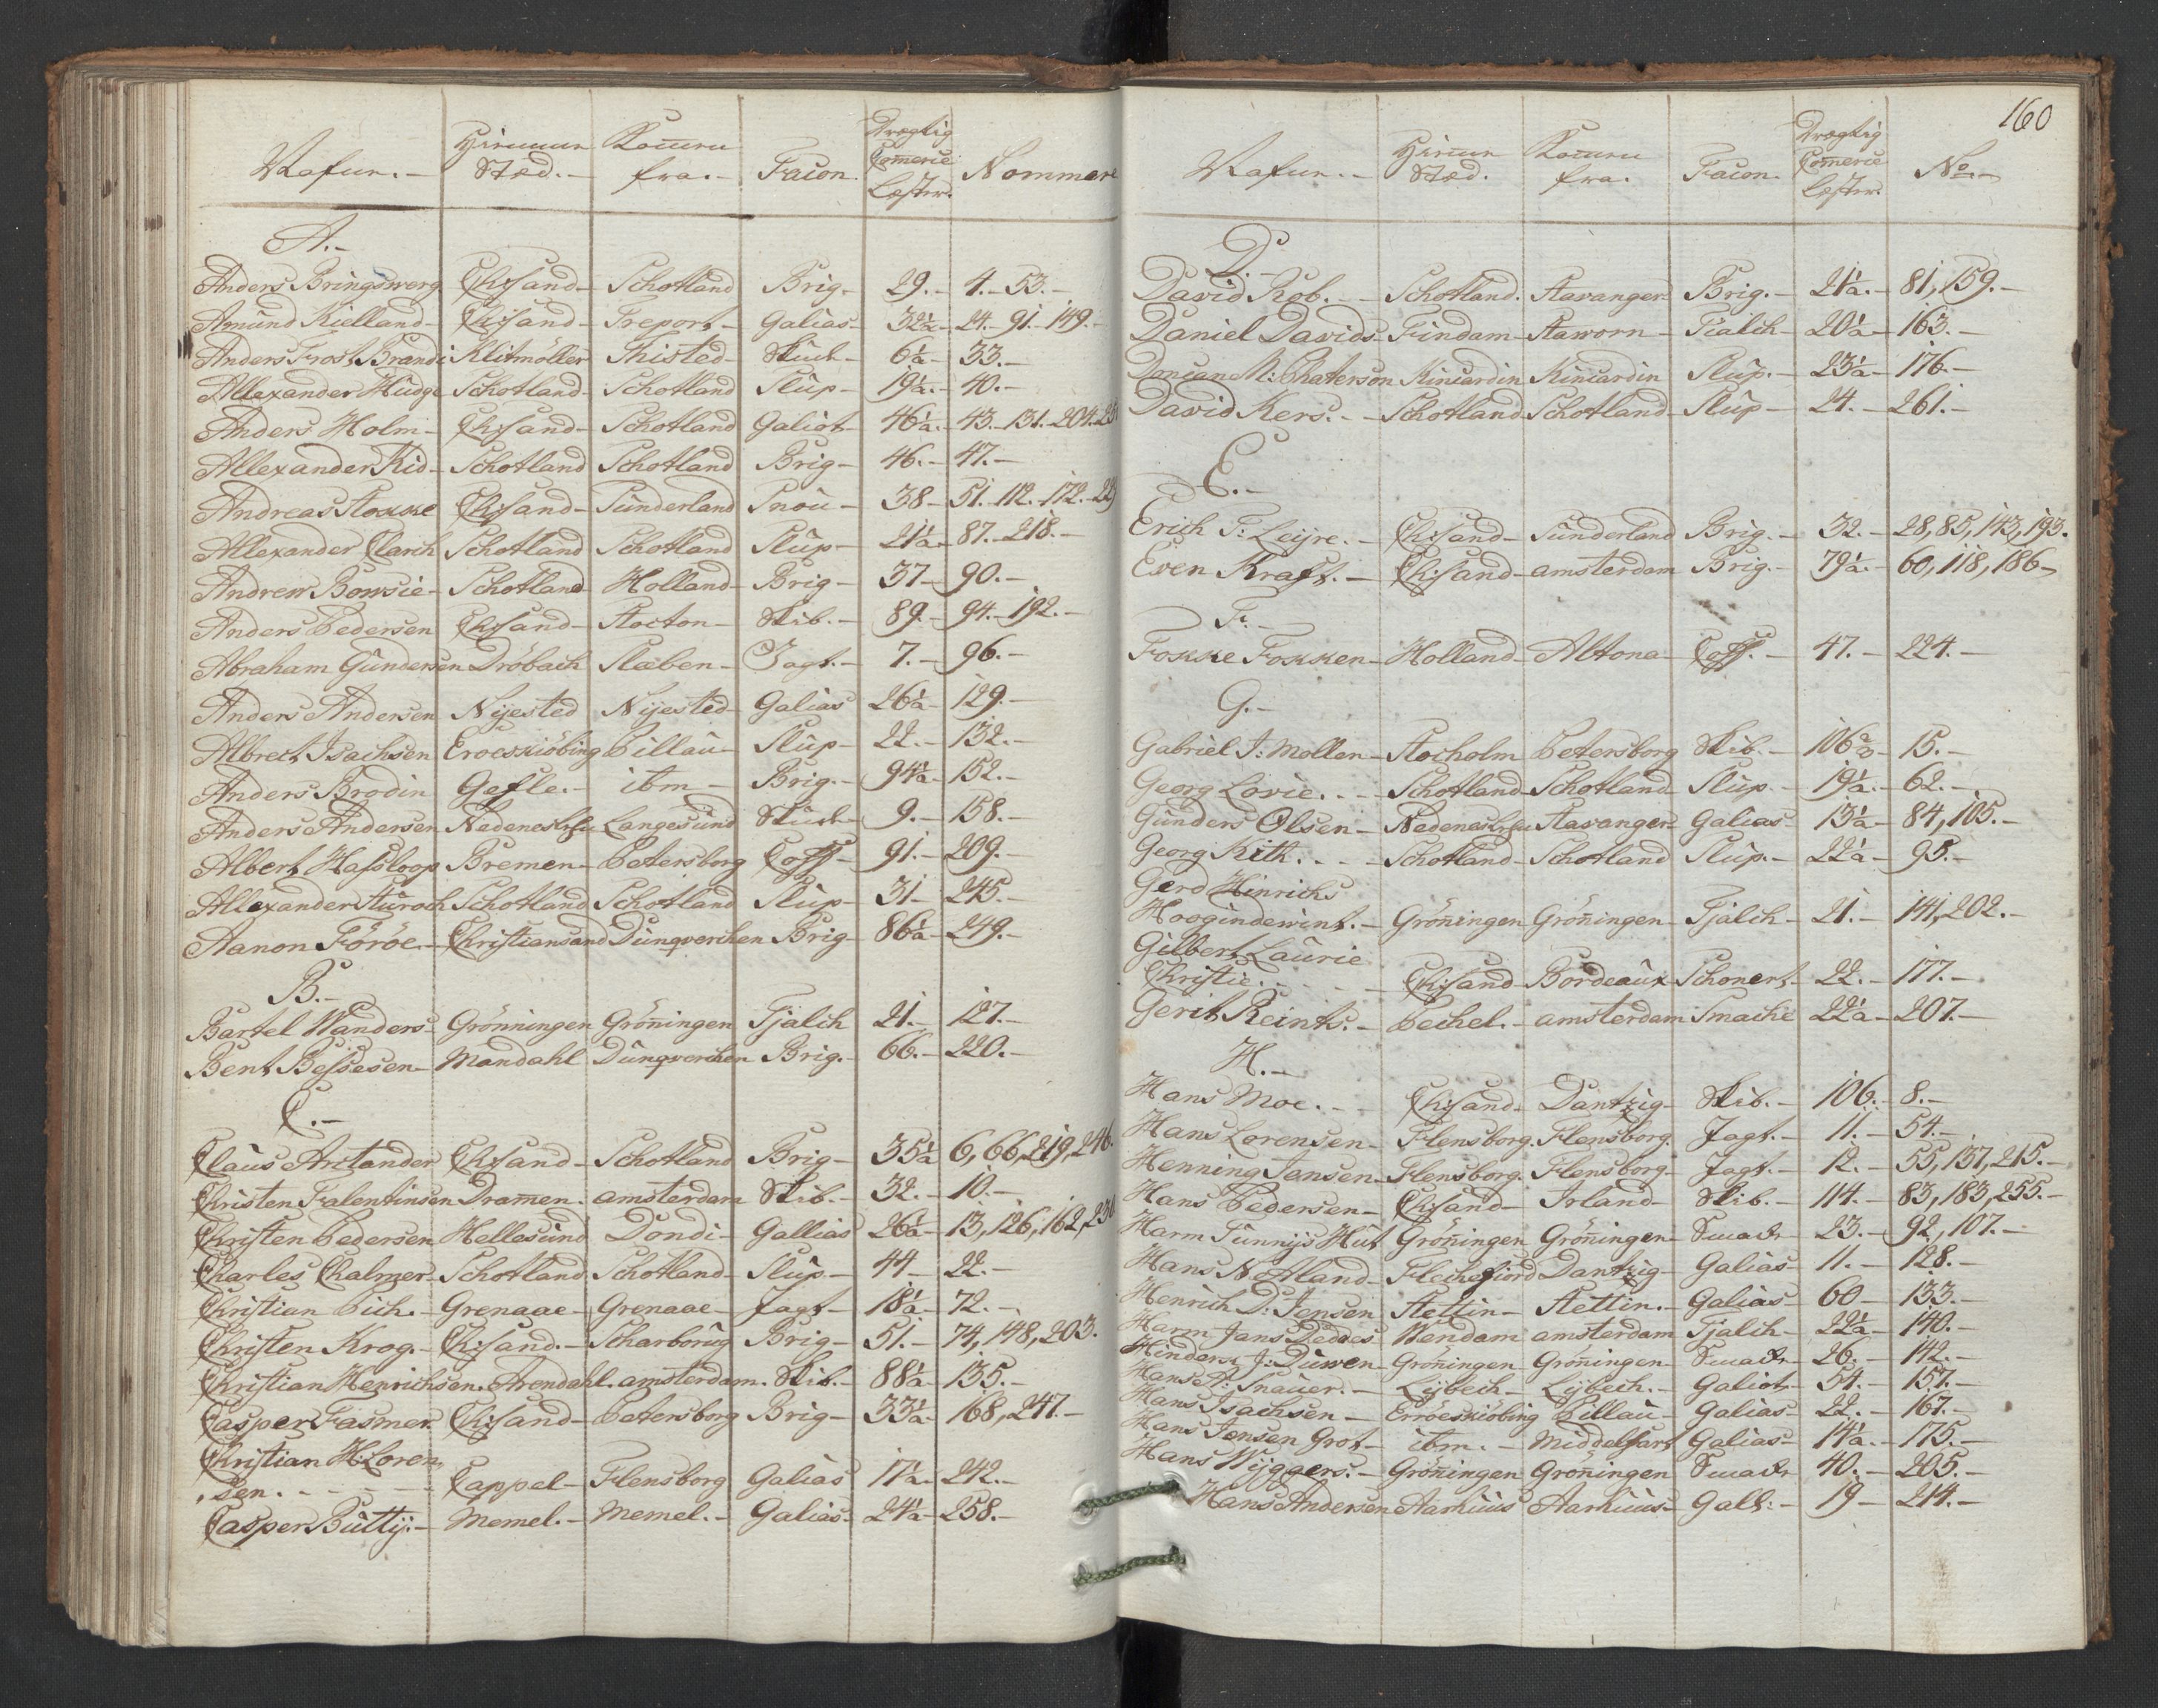 Nafne.- Hiemme Stæd.- Komme fra.- Facon. Drægtig Comerce Læster. Nommere
A.-
Anders Bringsværg Chrsand- Schotland Brig- 29.- 4.- 53.-
Amund Kielland- Chrsand- Treport- Galias- 32½- 24.- 91.- 149.-
Anders Frost Brandi Klitmöller Thisted- Skude- 6½- 33.-
Allexander Hudge Schotland- Schotland Slup- 19½.- 40.-
Anders Holm- Chrsand- Schotland Galiot 46½.- 43.- 131.- 204.-
Allexander Kid- Schotland Schotland Brig- 46.- 47.-
Andreas Stokke Chrsand- Sunderland Snou- 38- 51.- 112.- 172.-
Allexander Clarch Schotland Schotland Slup- 21½- 87.- 218.-
Andrew Bowsie- Schotland Holland- Brig- 37- 90.-
Anders Pedersen Chrsand- Stocton- Skib.- 89.- 94.- 192.-
Abraham Gundersen Dröbach Slæben- Jagt.- 7.- 96.-
Anders Andersen Nyested Nyested- Galias 26½- 129.-
Albrect Isachsen Eroeskiöbing Pillau- Slup- 22.- 132.-
Anders Brodin Gefle.- ibm- Brig.- 94½- 152.-
Anders Andersen Nedenes Langesund Skude- 9.- 158.-
Albert Hassloop Bremen- Petersborg Coff- 91.- 209.-
Allexander Sturoch Schotland Schotland Slup- 31- 245.-
Aanon Föröe.- Christiansand Dunqverchen Brig- 86½- 249.-
B.-
Bartel Wanders- Grönningen Gröningen Tjalch 21.- 127.-
Bent Bessesen- Mandahl Dunqverchen Brig.- 66.- 220.-
C.-
Claus Arctander Chrsand- Schotland Brig- 35½ 6, 66, 219, 246.
Christen Falentinsen Dramen. amsterdam Skib.- 32.- 10.-
Christen Pedersen Hellesund Dondi- Gallias 26½- 13, 126, 162,
Charles Chalmer- Schotland Schotland- Slup- 44- 22.-
Christian Pich.- Grenaae- Grenaae- Jagt- 18½- 72.-
Christen Krog.- Chrsand.- Scharborug Brig- 51.- 74, 148, 203.
Christian Henrichsen. Arendahl. amsterdam. Skib.- 88½- 135.-
Casper Fasmer Chrsand- Petersborg Brig- 33½- 168, 247.-
Christian H: Loren
sen.- Cappel- Flensborg Galias 17½- 242.-
Casper Buttij.- Memel.- Memel.- Galias- 24½- 258.-
160
Nafne.- Hiemme Stæd. Komme fra. Facon. Drægtig Comerce Læster. No.-
D.-
David Rob.- Schotland. Stavanger Brig.- 21½.- 81, 159.-
Daniel Davids- Findam- Staworn- Tialch- 20½- 163.-
Doncan M: Phaterson Kincardin Kincardin Slup.- 23½- 176.-
David Kers.- Schotland Schotland- Slup- 24.- 261.-
E.-
Erich T: Leijre.- Chrsand- Sunderland Brig.- 32.- 28, 85, 143, 193.
Even Kraft.- Chrsand- amsterdam Brig.- 79½.- 60, 118, 186-
F.-
Fokke Fokken- Holland- Altona- Coff.- 47.- 224.-
G.-
Gabriel J: Mollen- Stocholm Petersborg Skib.- 106⅔- 15.-
Georg Lovie.- Schotland- Schotland Slup- 19½.- 62.-
Gunders Olsen- Nedenes Stavanger- Galias- 13½- 84, 105.-
Georg Kith.- Schotland- Schotland Slup.- 22½- 95.-
Gerd Hinrichs
Hoogindewint.- Gröningen Gröningen- Tjalch- 21.- 141, 202.-
Gilbert Laurie
Christie.- Chrsand Bordeaux- Schonert- 22.- 177.-
Gerit Reints.- Pechel.- amsterdam Smacke 22½- 207.-
H.-
Hans Moe.- Chrsand- Dantzig- Skib.- 106.- 8.-
Hans Lorensen- Flensborg. Flensborg. Jagt.- 11.- 54.-
Henning Jansen- Flensborg. Flensborg- Jagt.- 12.- 55, 137, 215.-
Hans Pedersen- Chrsand- Irland- Skib.- 114.- 83, 183, 255.-
Harm Tunnijs Hut Gröningen Gröningen- Smack- 23.- 92, 107.-
Hans Nætland- Flechefjord Dantzig- Galias- 11.- 128.-
Henrich D: Jensen Stettin- Stettin.- Galias- 60- 133.-
Harm Jans Deddes Wendam amsterdam Tjalch- 22½- 140.-
Hindera J: Duwen- Gröningen Gröningen- Smack- 26.- 142.-
Hans P: Snauer.- Lybech- Lybech.- Galiot- 54.- 157.-
Hans Isachsen- Erröeskiöbing Pillau- Galias- 22.- 167.-
Hans Jensen Grot- ibm.- Middelfart Galias- 14½.- 175.-
Hans Wyggers.- Gröningen Gröningen Smack 40.- 205.-
Hans Andersen Aarhuus Aarhuus- Gall:- 19- 214.-